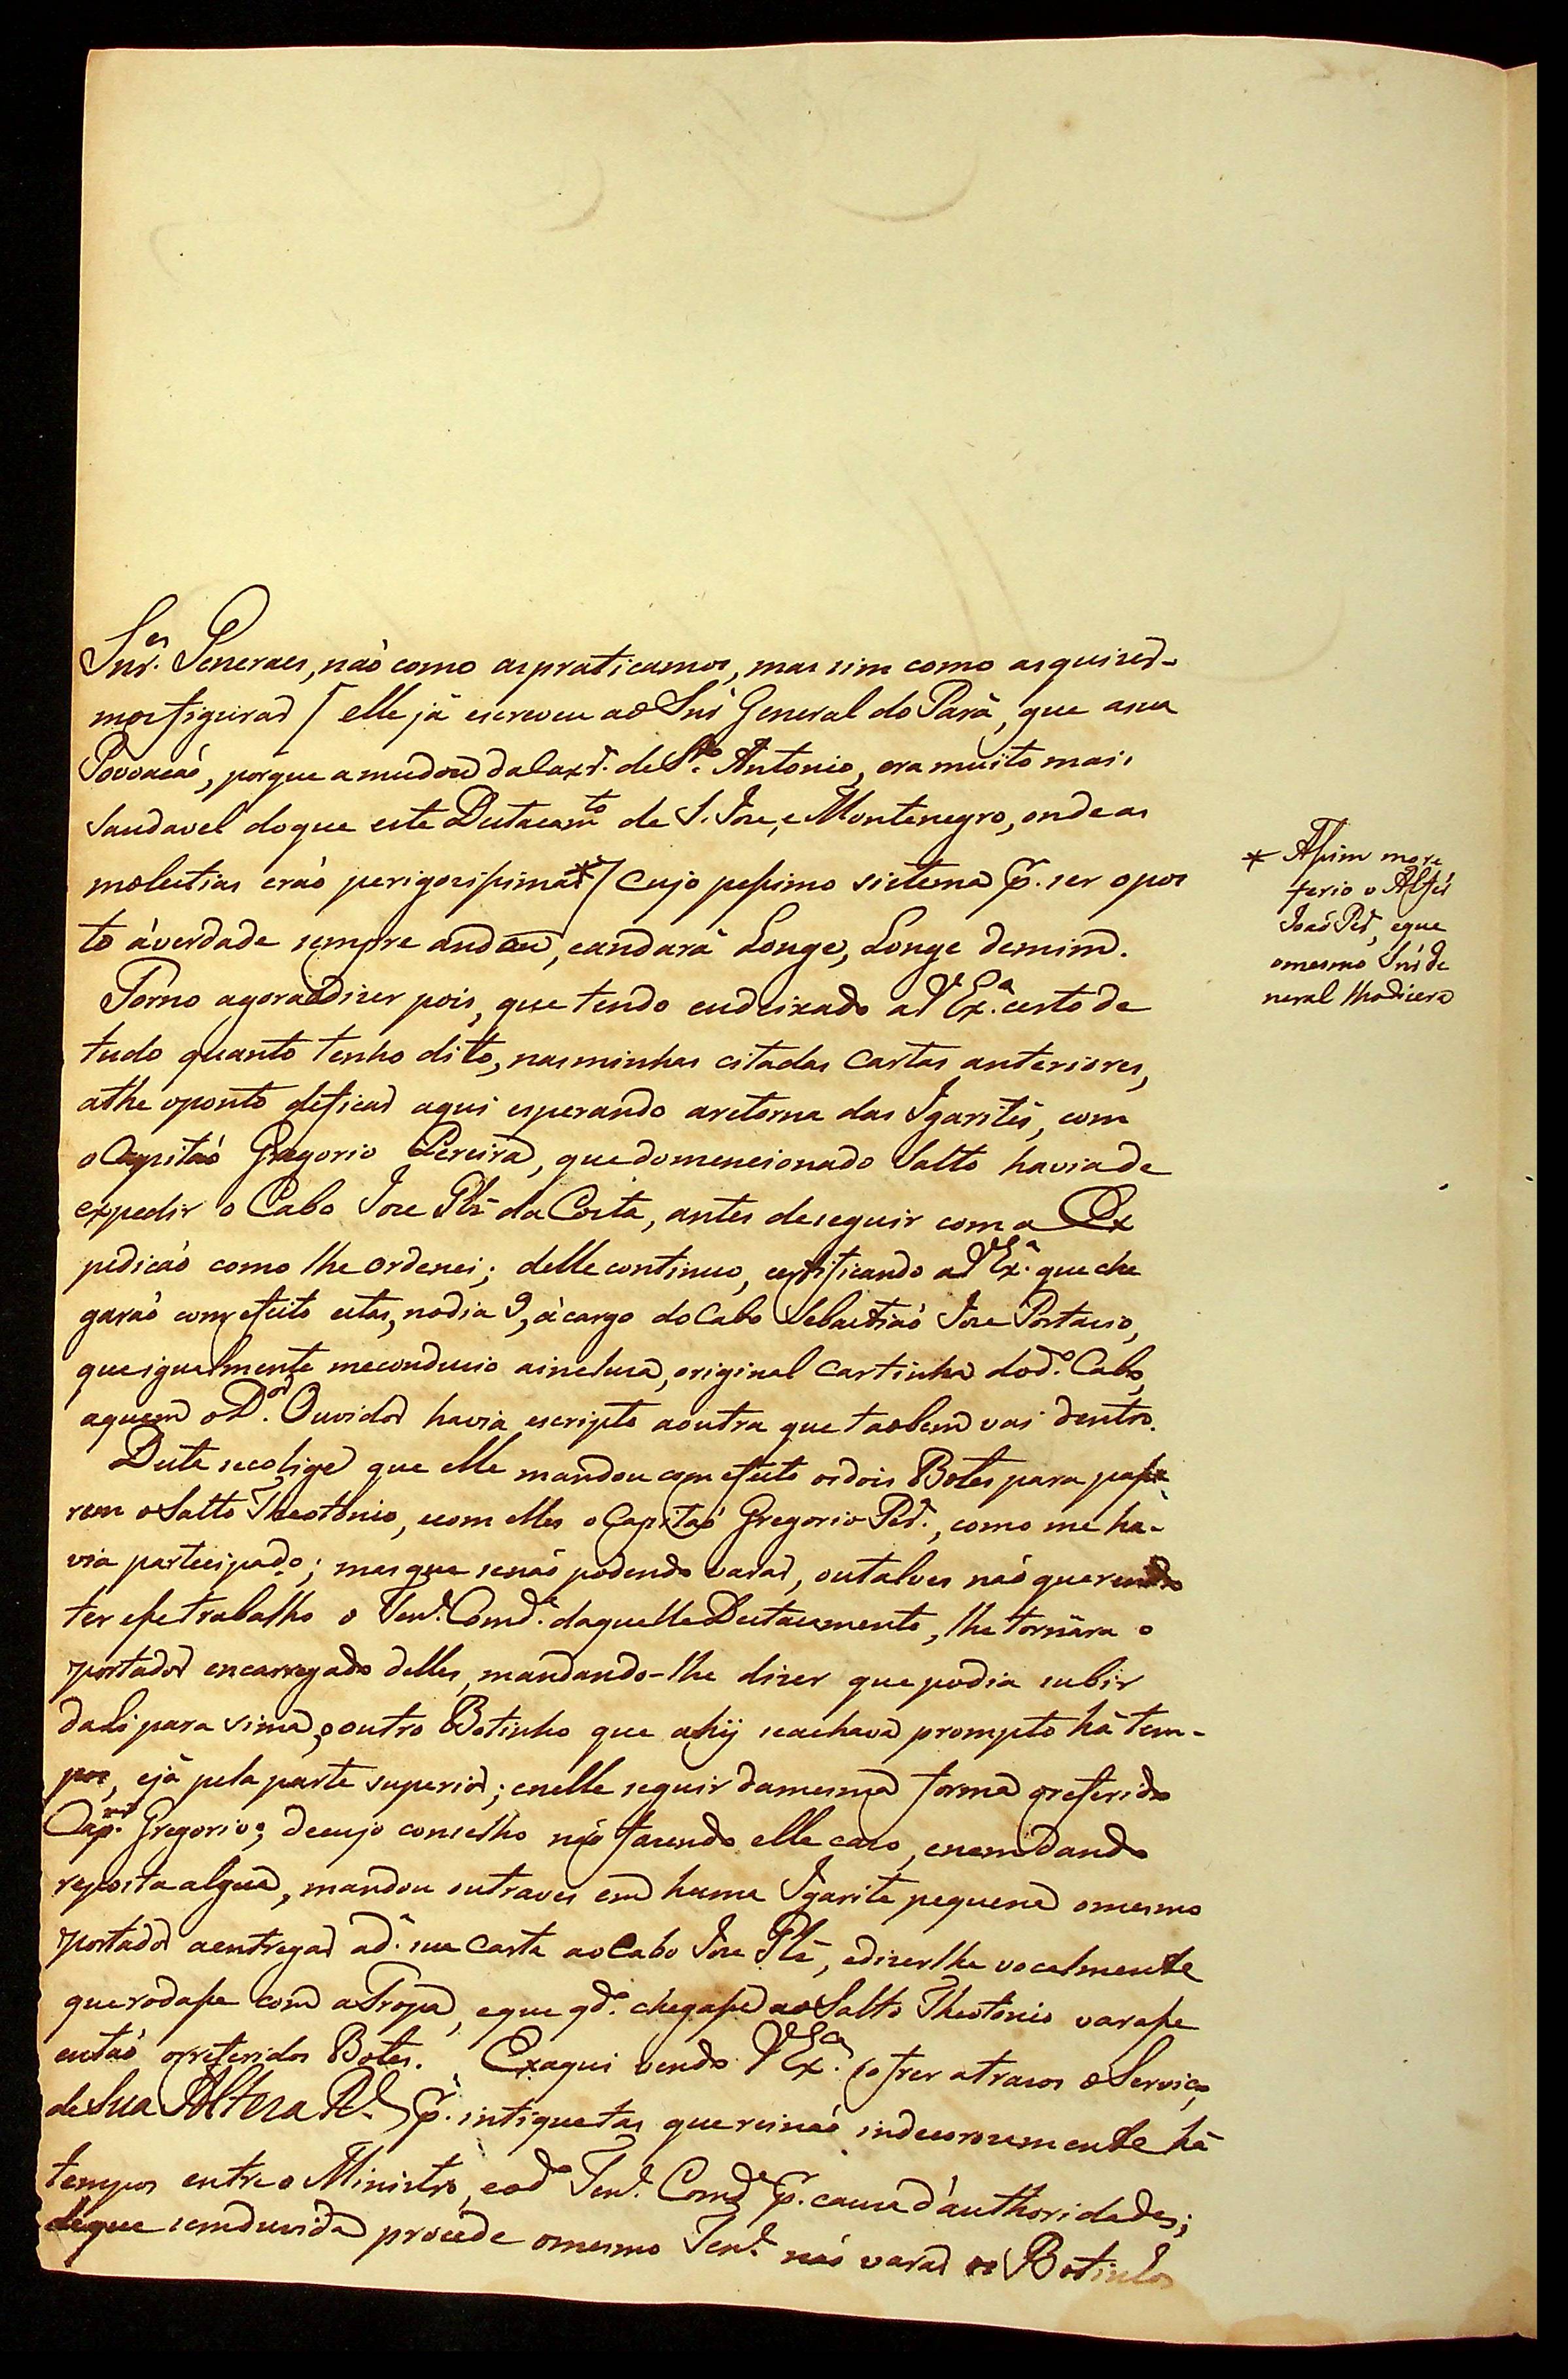 Snr.es Generaes, não como as praticamos, mas sim como as quizer-
mos figurar / elle já escreveu ao Snr General do Pará, que a sua
Povoação, porque a mudou da Caxr.ª de S.to Antonio, era muito mais
saudavel do que este Destacam.to de S. Joze, e Montenegro, onde as
molestias erão perigosissimas * / cujo pessimo sistema p.r ser opos
to á verdade sempre andou, e andará Longe, Longe de mim.
Torno agora a dizer pois, que tendo eu deixado a V Ex.ª certo de
tudo quanto tenho dito, nas minhas citadas Cartas anteriores,
athe o ponto de ficar aqui esperando a retorna das Igarités, com
o Capitão Gregorio Pereira, que do mencionado Salto havia de
expedir o Cabo Joze Plz da Costa, antes de seguir com a Ex
pedição como lhe ordenei; delle continuo, certificando a V Ex.ª que che
garão com efeito estas, no dia 9, á cargo do Cabo Sebastião Joze Portacio,
que igualmente me condusio a inclusa, original Cartinha do d.º Cabo,
a quem o D.or Ouvidor havia escripto a outra que taobem vai dentro.
Deste se colige que elle mandou com efeito os dois Botes para passa
rem o Salto Theotonio, e com elles o Capitão Gregorio Pr.ª, como me ha-
via participado; mas que se não podendo varar, ou talves não querendo
ter esse trabalho o Ten.e Comd.e daquelle Destacamento, lhe tornára o
portador encarregado delles, mandando-lhe dizer que podia subir
dali para sima, o outro Botinho que ahy se achava prompto há tem-
pos, e já pela parte superior; e nelle seguir da mesma forma o referido
Cap.m Gregorio; de cujo conselho não fazendo elle caso, e nem dando
reposta algua, mandou outra ves em huma Igarité pequena o mesmo
portador a entregar a d.ª sua Carta ao Cabo Joze Plz, e dizer lhe vocalmente
que rodasse com a Tropa, e que qd.º chegasse ao Salto Theotonio varasse
então os referidos Botes. Ex aqui vendo V Ex.ª sofrer atrasos o Serviço
de Sua Alteza R.l p.r intiquetas que reinão indecorosamente há
tempos entre o Ministro, e o d.º Ten.e Comd.e p.r causa d'authoridades;
de que sem duvida procede o mesmo Ten.e não varar os Botinhos
* Assim me re
ferio o Alfés
João Pr.ª, e que
o mesmo Snr Ge
neral lho dicera